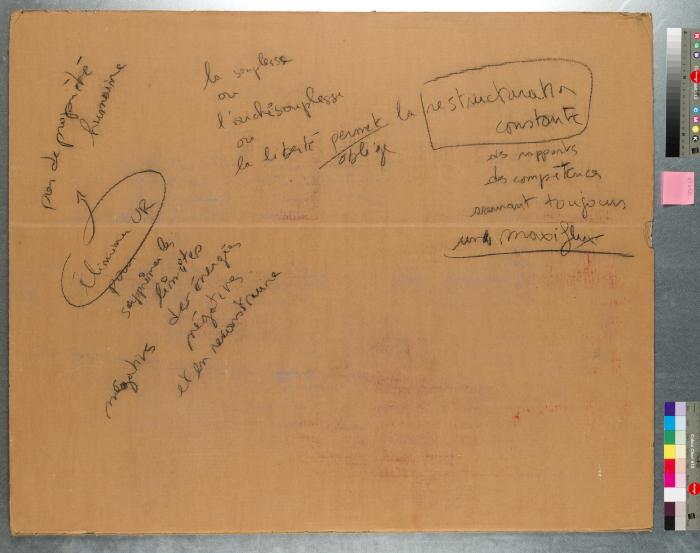 pas de propriété
humaine
la souplesse
ou
l'archésouplesse
ou
la liberté permet la restructuration
oblige
constante
des rapports
des compétences
toujours
un maxiflux
éliminer UR
pour
supprimer les
limites
des énergies
négatives
négatives
et en reconstruire